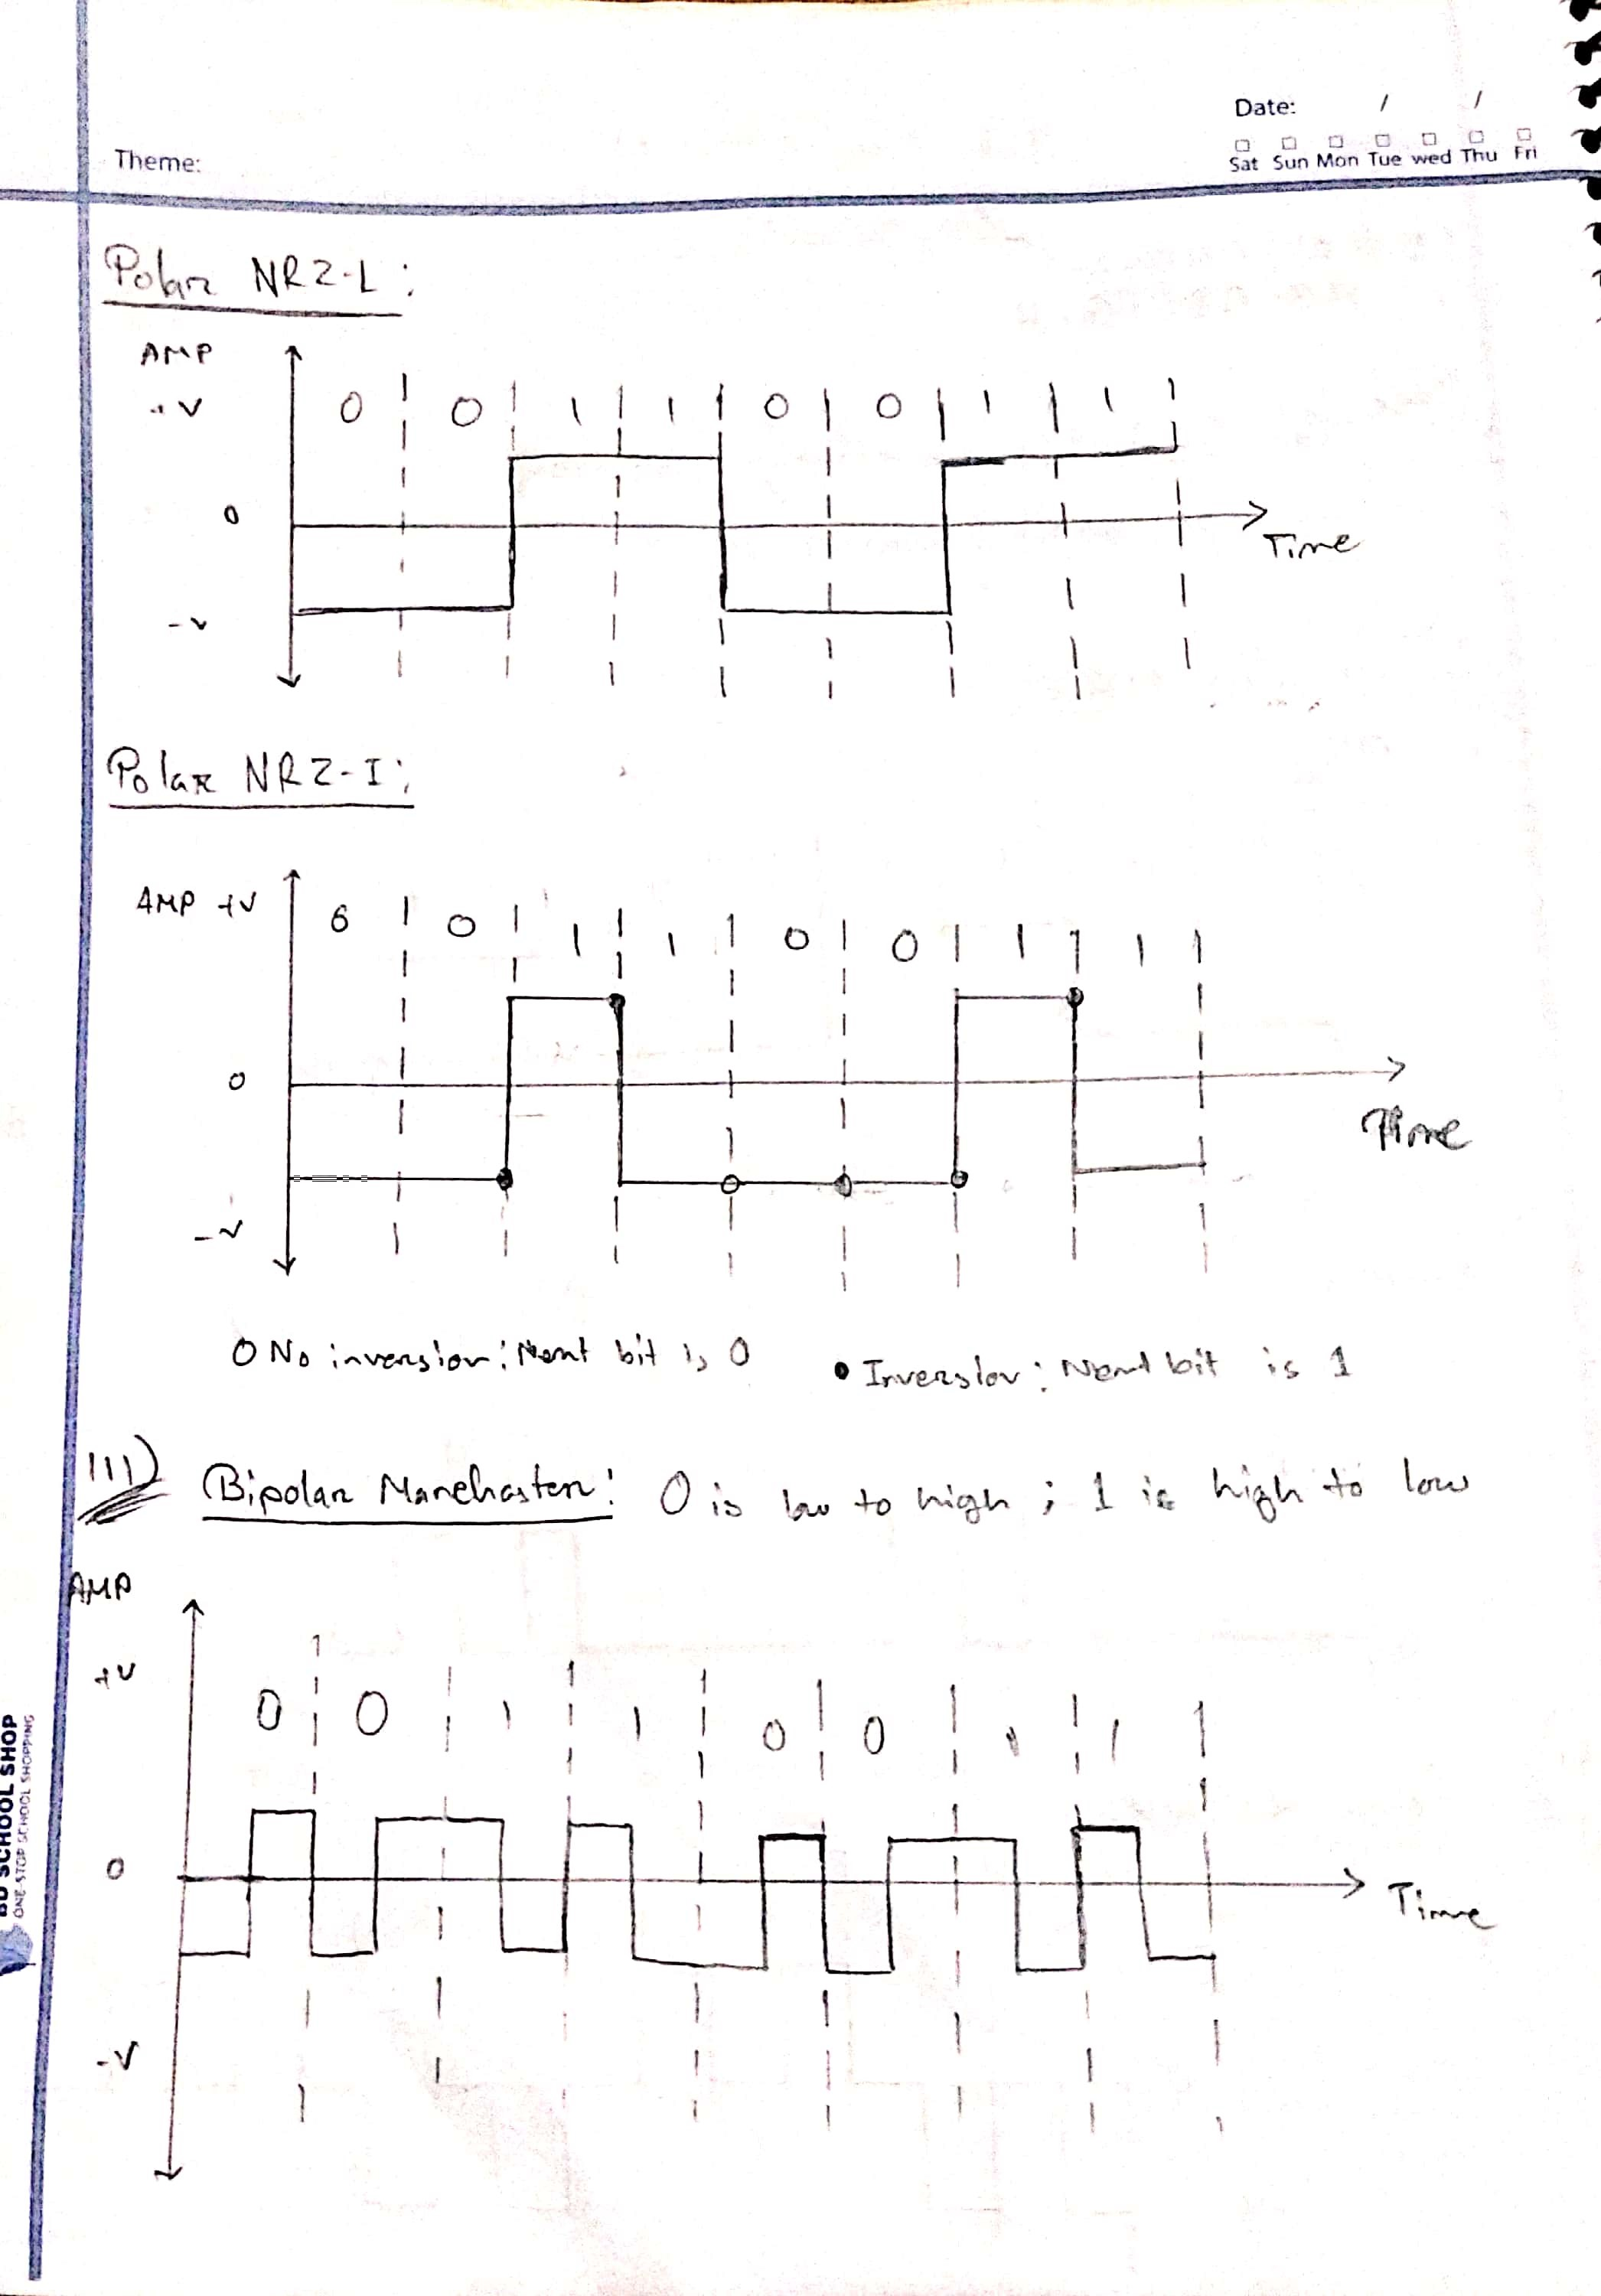 Date: / /
Sat Sun Mon Tue wed Thu Fri
Theme:
Polar NRZ-L:
AMP
+V
0 0 1 1 0 0 1 1
0
Time
-V
Polar NRZ-I:
AMP +V
0 0 1 1 0 0 1 1
0
Time
-V
O No inversion: Next bit is 0
● Inversion: Next bit is 1
III) Bipolar Manchaster: 0 is low to high; 1 is high to low
AMP
+V
0 0 1 1 0 0 1 1
0
Time
-V
BD SCHOOL SHOP
ONE-STOP SCHOOL SHOPPING